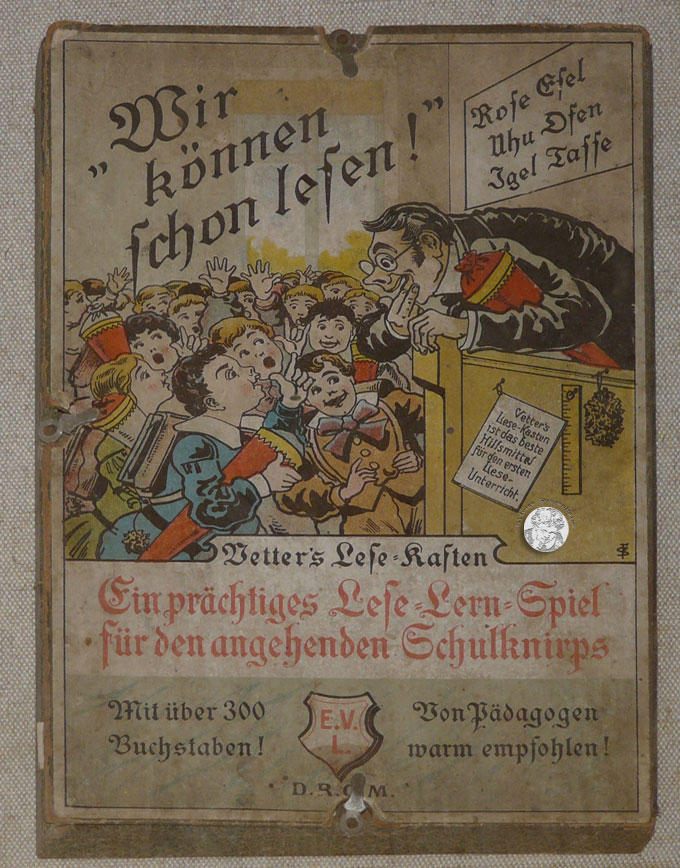 „Wir
können
schon lesen!"
Rose Esel
Uhu Ofen
Igel Tasse
Vetter's
Lese-Kasten
ist das beste
Hilfsmittel
für den ersten
Lese-
Unterricht.
Vetter's Lese-Kasten
Ein prächtiges Lese-Lern-Spiel
für den angehenden Schulknirps
Mit über 300
Buchstaben!
E.V.
L.
Von Pädagogen
warm empfohlen!
D.R.G.M.